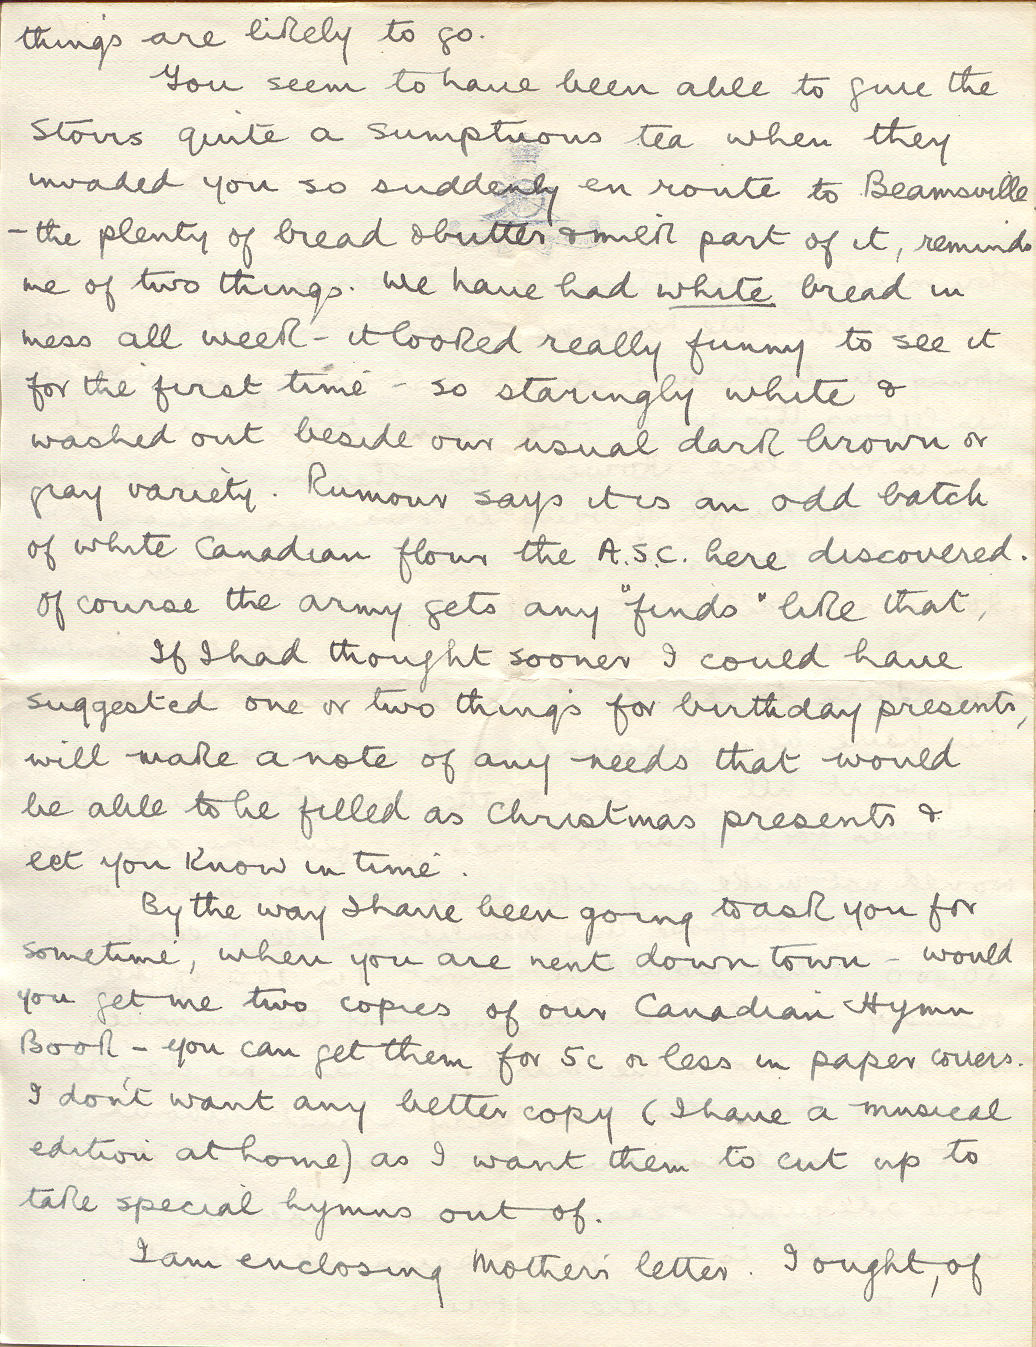 things are likely to go.
You seem to have been able to give the
Storrs quite a sumptuous tea when they
invaded you so suddenly en route to Beamsville
- the plenty of bread & butter & milk part of it, reminds
me of two things. We have had white bread in
mess all week - it looked really funny to see it
for the first time - so staringly white &
washed out beside our usual dark brown or
gray variety. Rumour says it is an odd batch
of white Canadian flour the A.S.C. here discovered.
Of course the army gets any "finds" like that,
If I had thought sooner I could have
suggested one or two things for birthday presents,
will make a note of any needs that would
be able to be filled as Christmas presents &
let you know in time.
By the way I have been going to ask you for
sometime, when you are next down town - would
you get me two copies of our Canadian Hymn
Book - you can get them for 5c or less in paper covers.
I don't want any better copy (I have a musical
edition at home) as I want them to cut up to
take special hymns out of.
I am enclosing Mother's letter. I ought, of